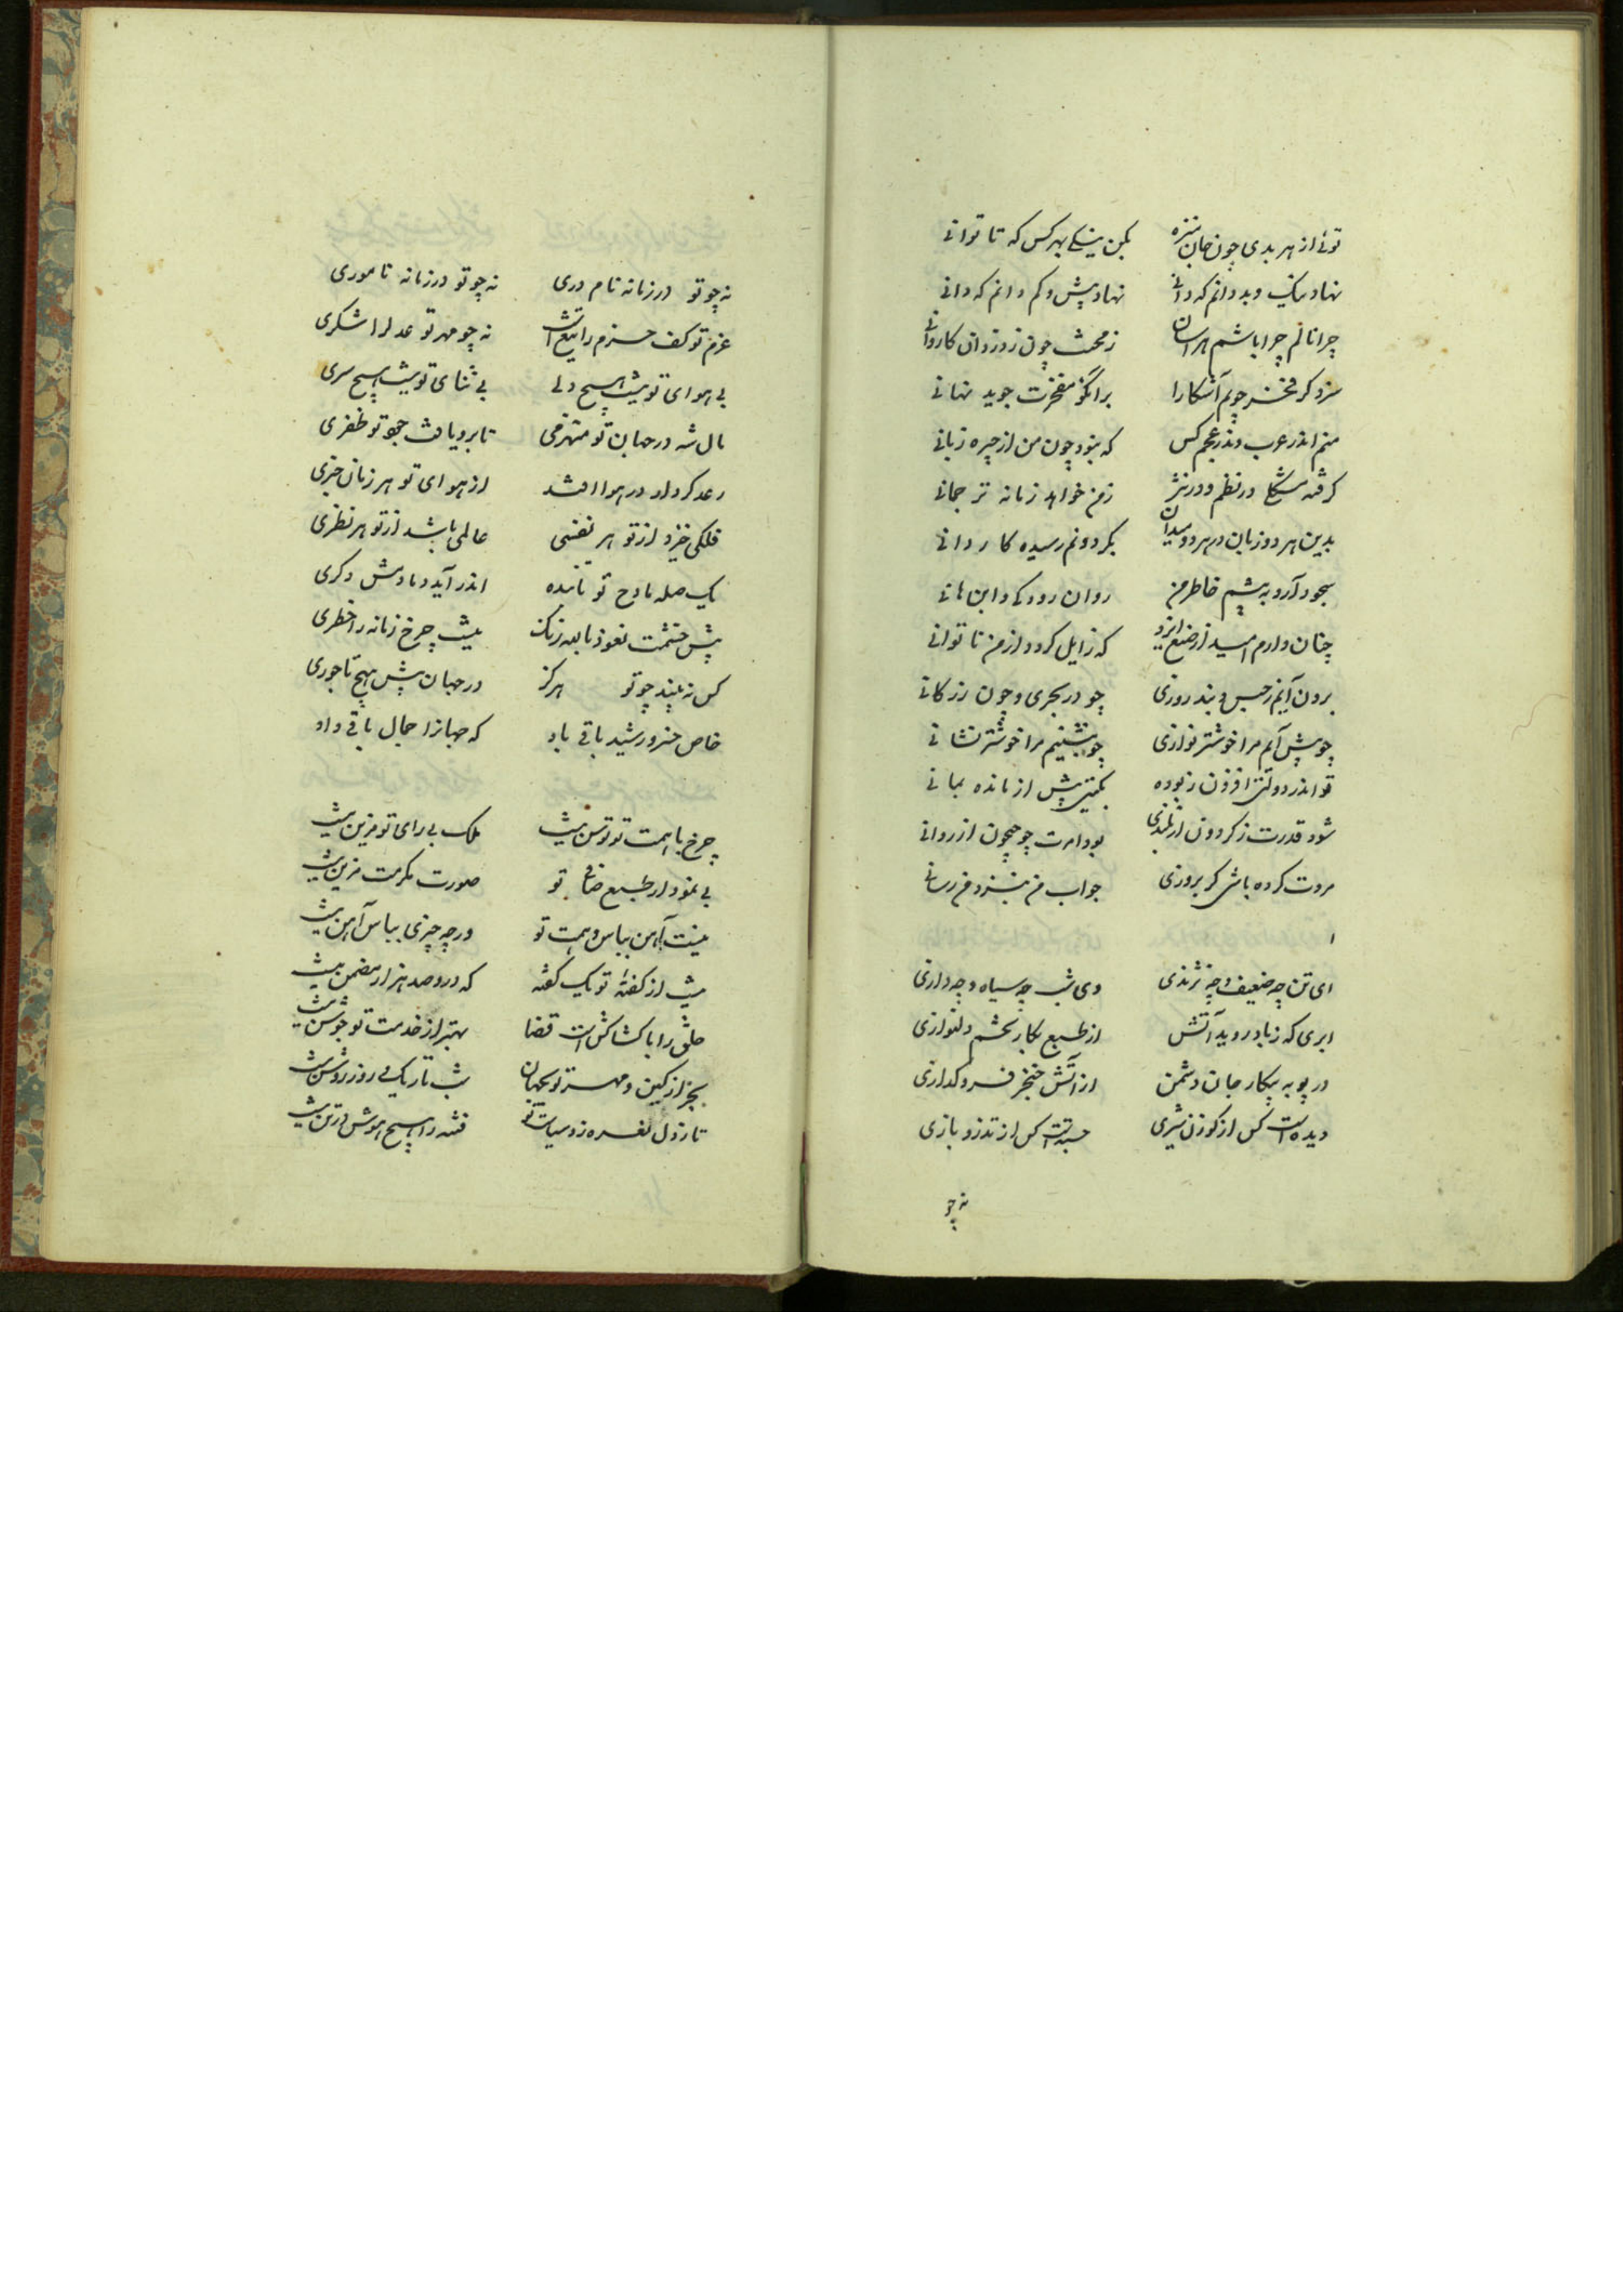 توئی از هر بدی چون جان منزه بکن نیکی بهر کس که تا توانی
نهاد نیک و بد دانم که دانی نهاد بیش و کم دانم که دانی
چرا نالم چرا باشم هراسان ز محنت چون ز دزدان کاروانی
سزد کر فخر جویم آشکارا بر انکو مفخرت جوید نهانی
منم اندر عرب و اندر عجم کس که بنود چون من از چیره زبانی
کر فتد مشکلی در نظم و در نثر ز من خواهد زمانه ترجمانی
بدین هر دو زبان در هر دو میدان بکردونم رسیده کامرانی
سجود آرد به پیشم خاطر من روان رودکی و ابن هانی
چنان دارم امید از صنع ایزد که زایل کردد از من ناتوانی
برون آیم ز حبس و بند روزی چو در بحری و چون زر کانی
چو پیش آیم مرا خوشتر نوازی چو بنشینیم مرا خوشتر نشانی
تو اندر دولتی افزون ز بوده بکیتی بیش از مانده بمانی
شود قدرت ز کردون از بلندی بود امرت چو جیحون از روانی
مروت کرده باشی کر بروزی جواب من بنزد من رسانی
ای تن چه ضعیف و چه نژندی وی شب چه سیاه و چه درازی
ابری که ز باد روید آتش از طبع بکار خشم و دلنوازی
در پویه پیکار جان دشمن از آتش خنجر فرو کدازی
دیده است کس از کوزن شیری جسته است کس از تذرو بازی
نه چو
نه چو تو در زمانه نام وری نه چو تو در زمانه ناموری
عزم تو کف حزم را تیغ است نه چو مهر تو عدل را شکری
بی هوای تو نیست هیچ دلی بی ثنای تو نیست هیچ سری
مال شه در جهان تو منهزمی تا برو یافت جود تو ظفری
رعد کردار در هوا افتد از هوای تو هر زمان خبری
فلکی خیزد از تو هر نفسی عالمی باشد از تو هر نظری
یک صله مادح تو نابستده اندر آید دمادمش دکری
پیش خشمت نعوذ بالله زنک نیست چرخ زمانه را خطری
کس نه بیند چو تو هرکز در جهان پیش هیچ تاجوری
خاص خسرو رشید باقی باد که جهانرا جمال باقی داد
چرخ با همت تو توسن نیست ملک بی رای تو مزین نیست
بی نمودار طبع صافی تو صورت مکرمت مزین نیست
نیست آهن بباس و همت تو ورچه چیزی بباس آهن نیست
نیست از کفته تو یک کفته که درو صد هزار مضمن نیست
خلق را با کشاکش است قضا بهتر از خدمت تو جوشن نیست
بجز از کین و مهر تو بجهان شب تاریک و روز روشن نیست
تا ز دل نعره زد سیاست تو فتنه را هیچ هوش در تن نیست